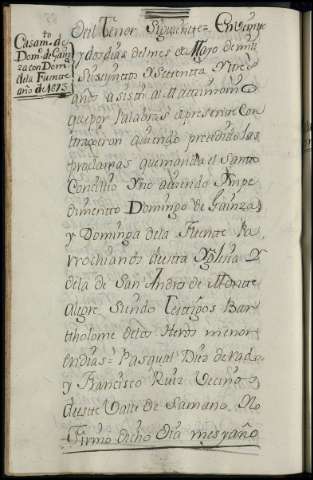 Casam.to de
Dom.o de Gain
za con Dom.a
dela Fuente
año de 1673
Del Tenor Siguiente= En Veinte
y dos dias del mes de Mayo de mill
Seiscientos y Setenta y tres
años asisti al Matrimonio
que por Palabras de presente Con
trageron auiendo precedido las
proclamas que manda el Santo
Concilio y no auiendo Ympe
dimento Domingo de Gainza
y Dominga dela Fuente Pa
rrochianos de esta Yglesia y
dela de San Andres de Monte
alegre, siendo Testigos Bar
tholome delos Heros menor
en dias= Pasqual Diez de Rada
y Francisco Ruiz Vecinos
de este Valle de Samano. Lo
Firmo dicho dia mes y año